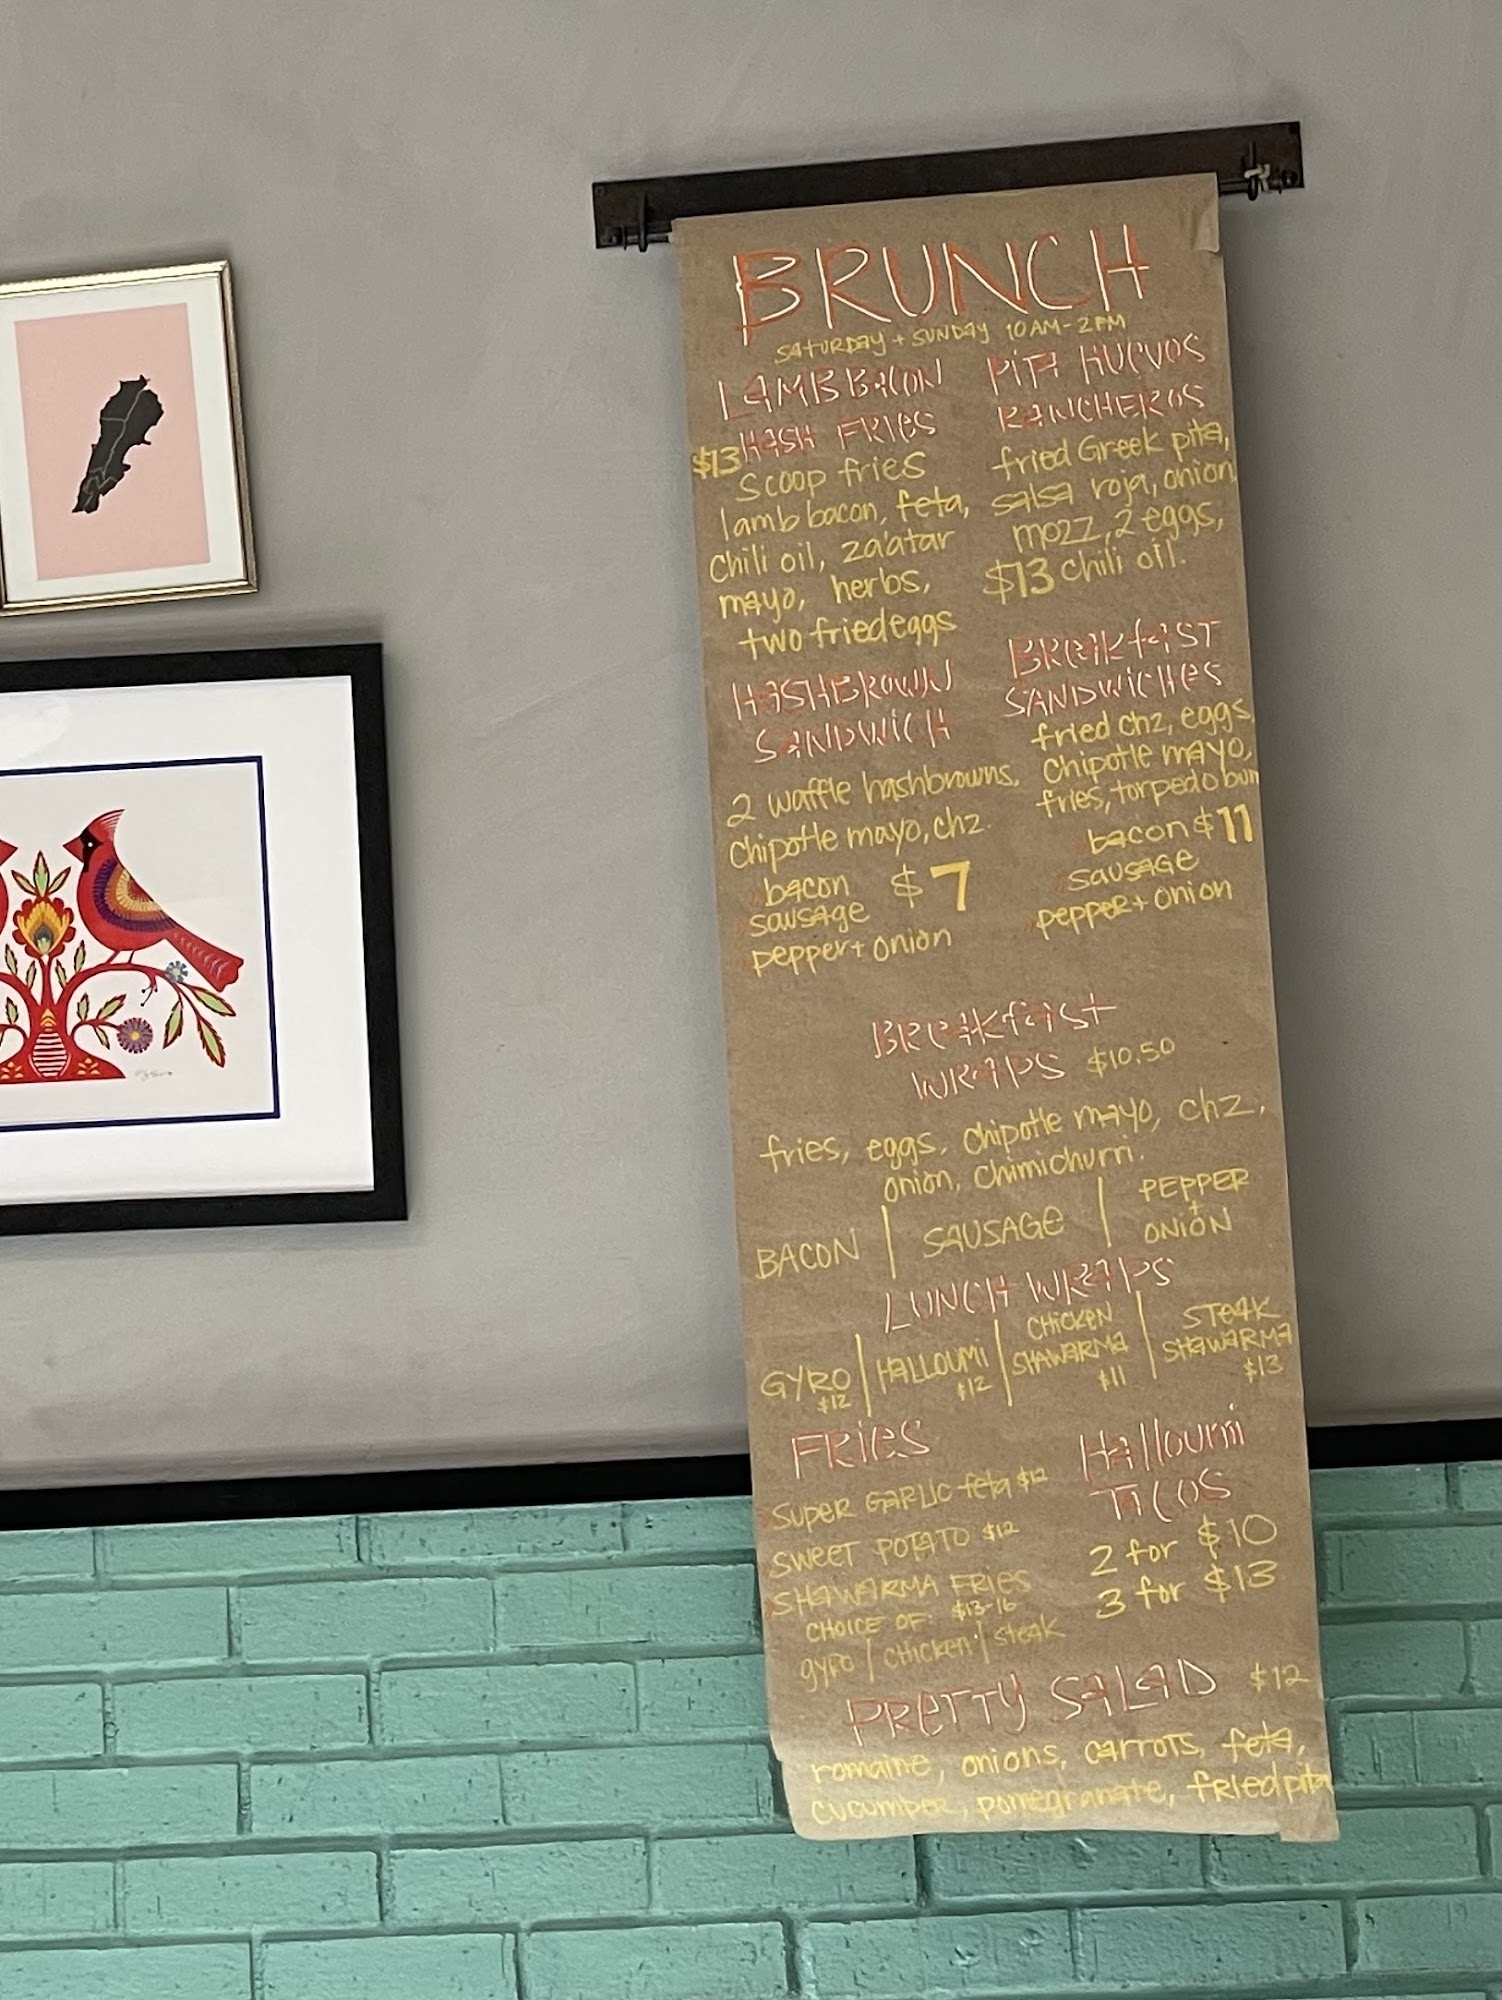 BRUNCH
SATURDAY + SUNDAY 10AM-2PM
LAMB BACON
HASH FRIES
$13
scoop fries
lamb bacon, feta,
chili oil, za'atar
mayo, herbs,
two fried eggs
PITA HUEVOS
RANCHEROS
fried Greek pita,
salsa roja, onion
mozz, 2 eggs,
$13 chili oil.
HASHBROWN
SANDWICH
2 waffle hashbrowns,
chipotle mayo, chz.
bacon $7
sausage
pepper + onion
BREAKfAST
SANDWICHES
fried chz, eggs,
chipotle mayo,
fries, torpedo bun
bacon $11
sausage
pepper + onion
BREAKfast
WRAPS $10.50
fries, eggs, chipotle mayo, chz,
onion, chimichurri.
BACON | SAUSAGE | PEPPER + ONION
LUNCH WRAPS
GYRO $12 | HALLOUMI $12 | CHICKEN SHAWARMA $11 | STEAK SHAWARMA $13
FRIES
SUPER GARLIC feta $12
SWEET POTATO $12
SHAWARMA FRIES
CHOICE OF: $13-16
gyro | chicken | steak
Halloumi
TACOS
2 for $10
3 for $13
PRETTY SALAD $12
romaine, onions, carrots, feta,
cucumber, pomegranate, fried pita